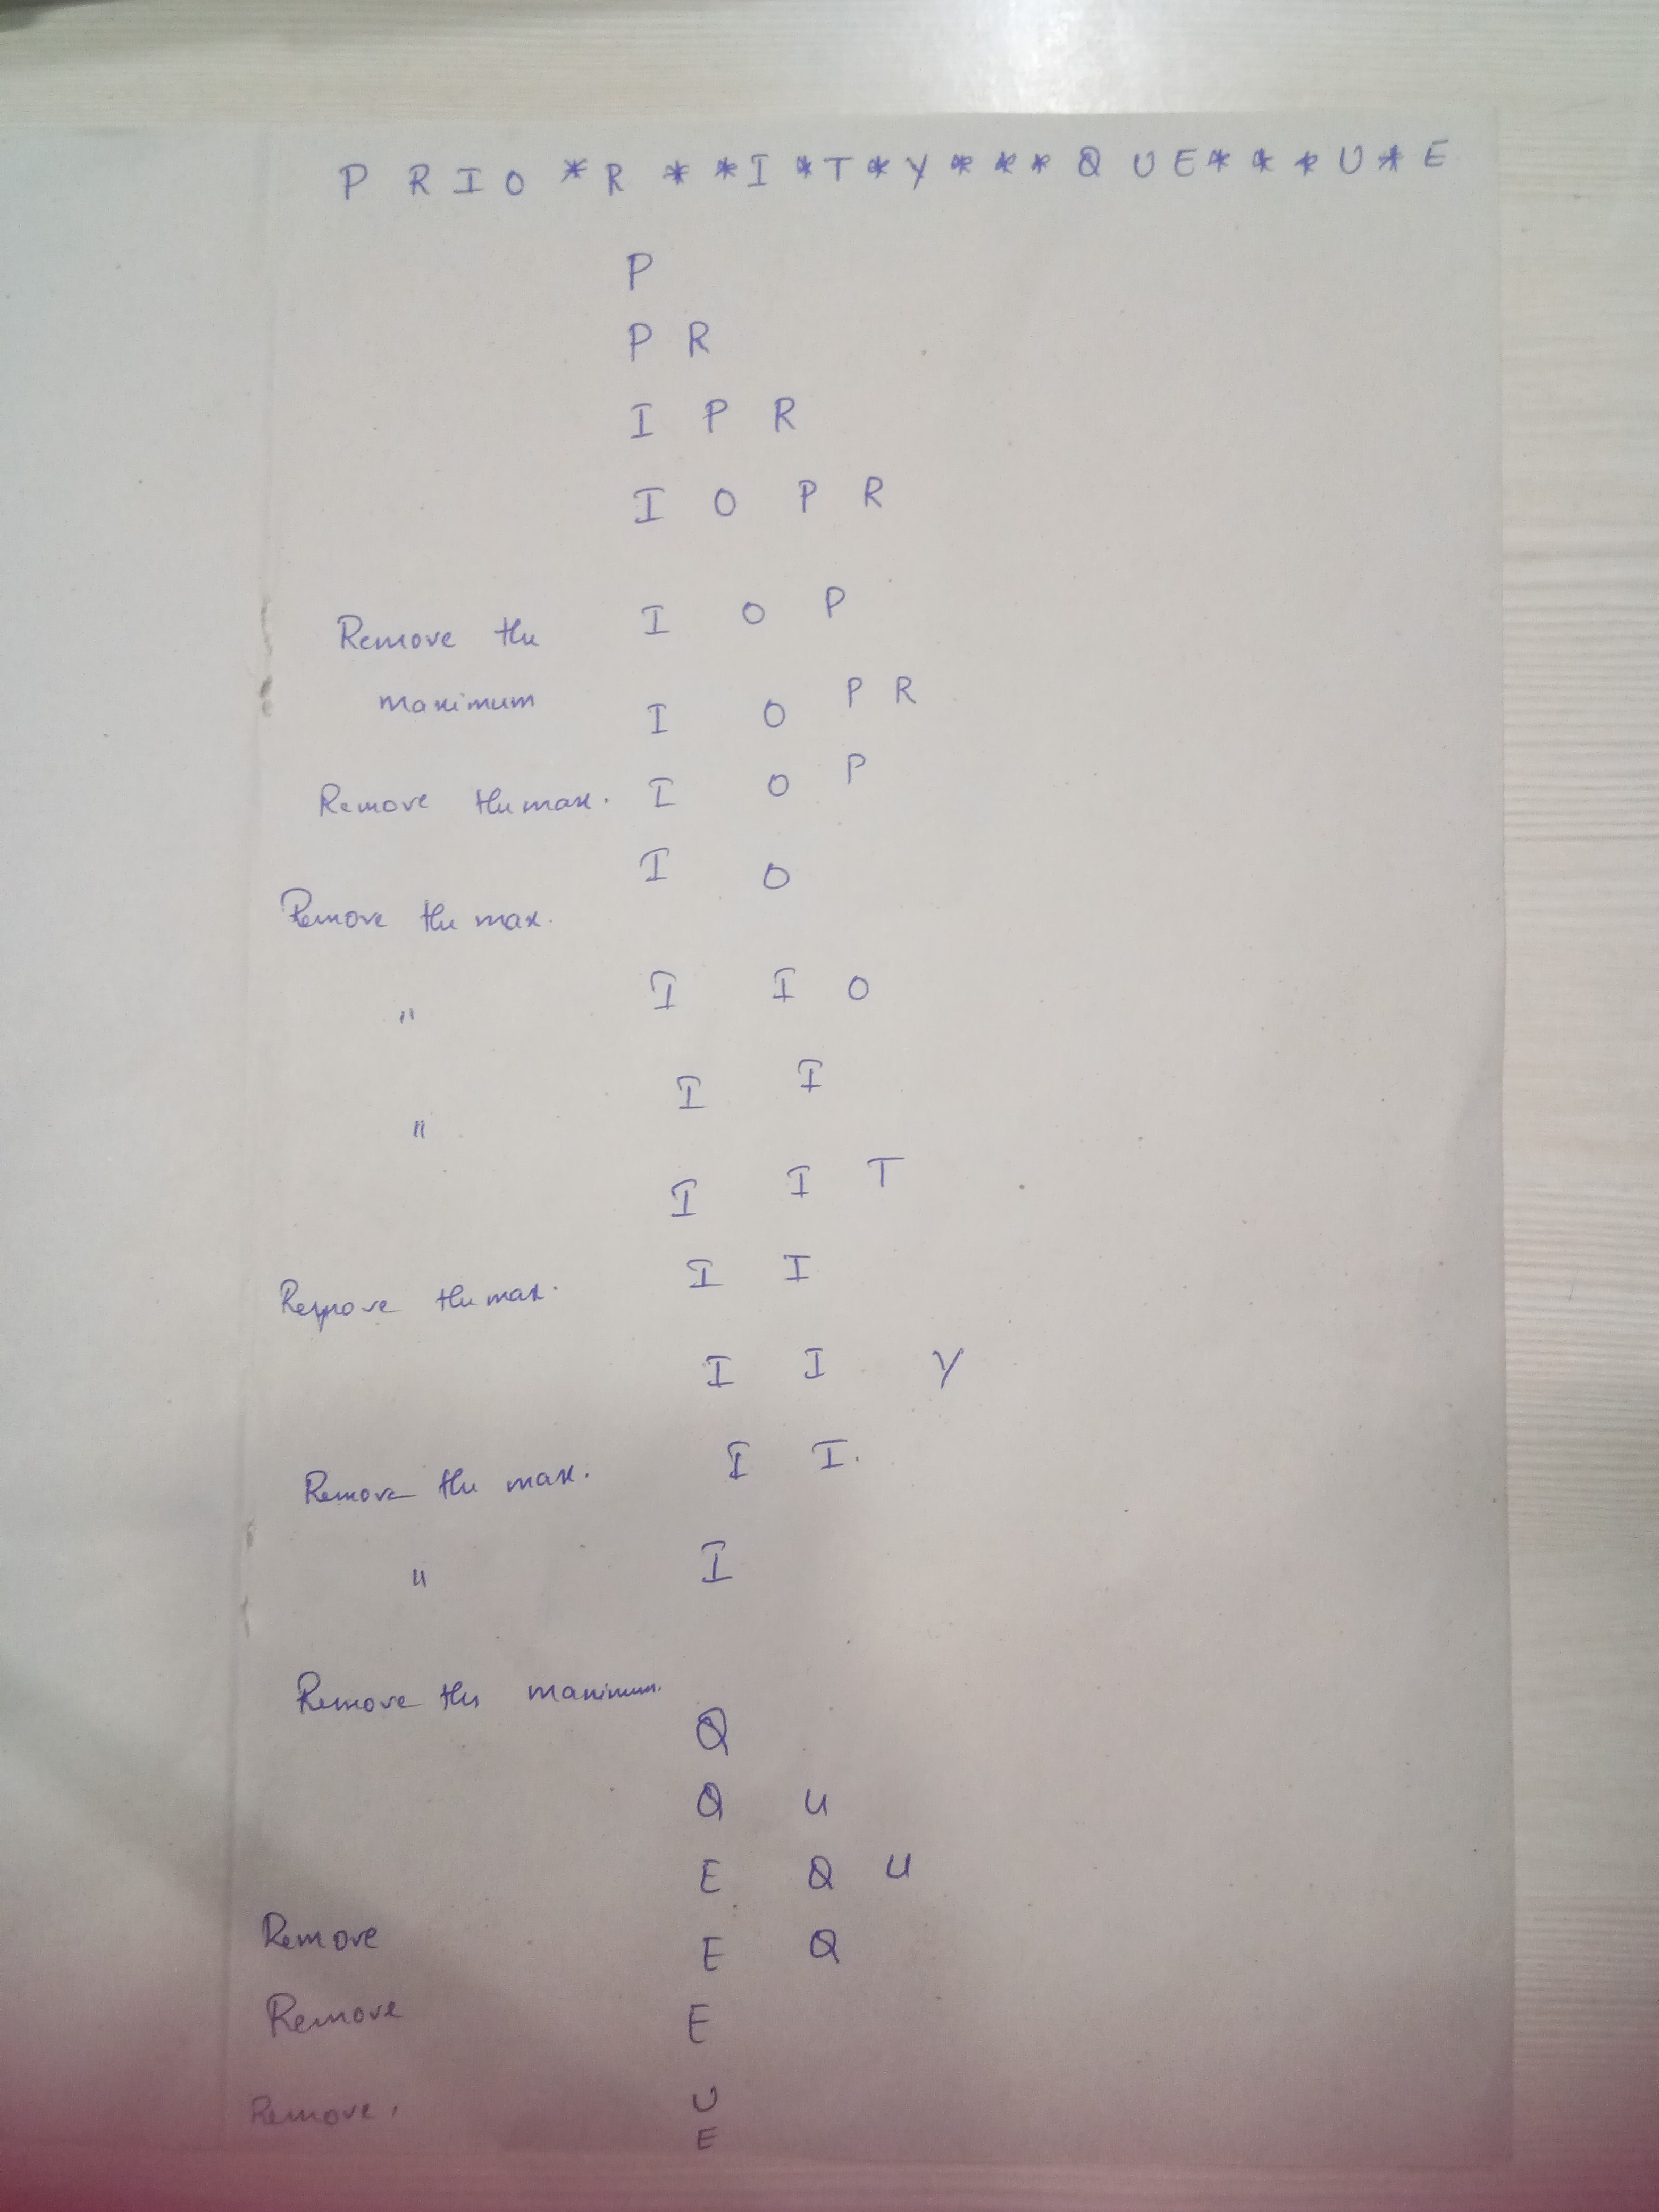 P R I O * R * * I * T * Y * * * Q U E * * * U * E
P
P R
I P R
I O P R
Remove the I O P
maximum I O P R
Remove the max. I O P
I O
Remove the max.
" I I O
" I I
I I T
Remove the max. I I
I I Y
Remove the max. I I.
" I
Remove the maximum.
Q
Q U
E Q U
Remove E Q
Remove E
Remove. U
E